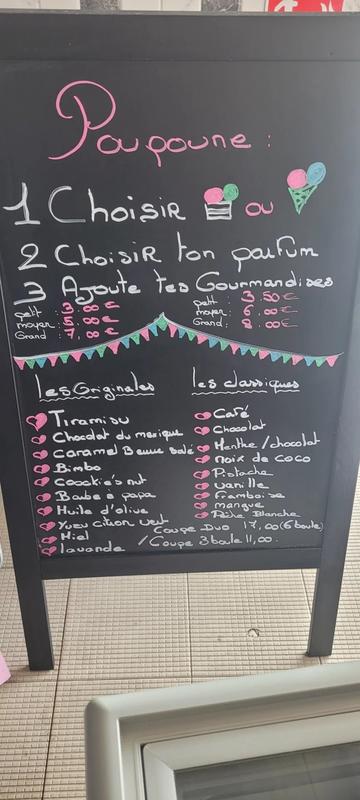 Poupoune :
1 Choisir ou
2 Choisir ton parfum
3 Ajoute tes Gourmandises
petit : 3.00€
moyen : 5.00€
Grand : 7,00€
petit : 3.50€
moyen : 6.00€
Grand : 8.00€
Les Originales
Tiramisu
Chocolat du mexique
Caramel Beurre Salé
Bimbo
Coookie's nut
Barbe à papa
Huile d'olive
Yuzu citron vert
Miel
lavande
les classiques
Café
Chocolat
Menthe/chocolat
noix de coco
Pistache
vanille
Framboise
mangue
Pêche Blanche
Coupe Duo 17,00(6 boule)
/Coupe 3 boule 11,00.